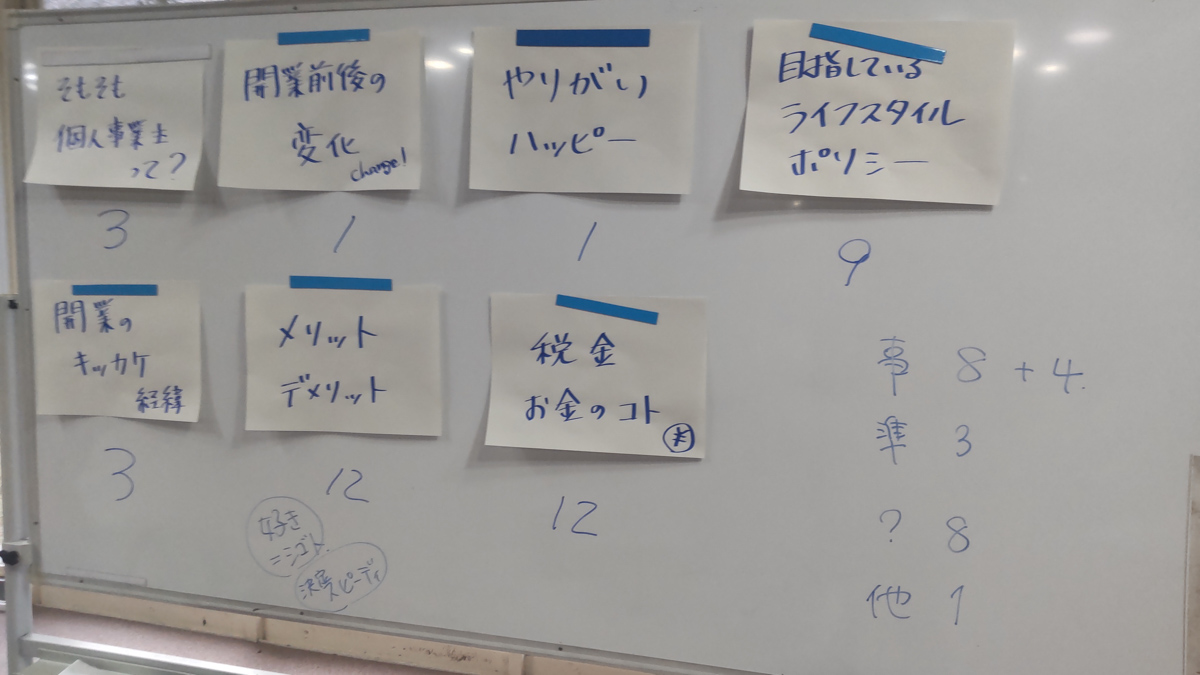 そもそも
個人事業主
って?
3
開業前後の
変化
change!
1
やりがい
ハッピー
1
目指している
ライフスタイル
ポリシー
9
開業の
キッカケ
経緯
3
メリット
デメリット
12
好き
=シゴト
スピーディ
税金
お金のコト
12
事 8 + 4.
準 3
? 8
他 1